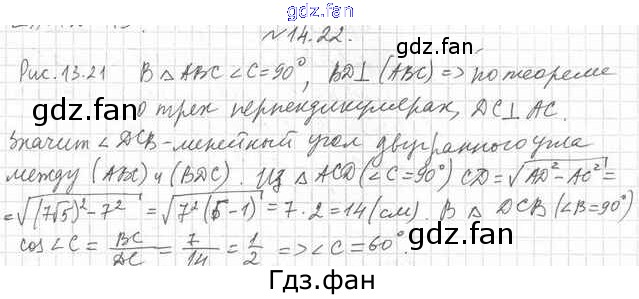 gdz.fan
№14.22.
Рис. 13.21 В △ABC ∠C=90°, BD⊥(ABC) => по теореме
о трех перпендикулярах, DC⊥AC.
Значит ∠DCB-линейный угол двугранного угла
между (ABC) и (BDC). Из △ACD(∠C=90°) CD=√(AD²-AC²)=
=√((7√5)²-7²)=√(7²(5-1))=7·2=14(см). В △ DCB(∠B=90°)
cos∠C=BC/DC=7/14=1/2 =>∠C=60°.
gdz.fan
gdz.fan
gdz.fan
gdz.fan
Гдз.фан